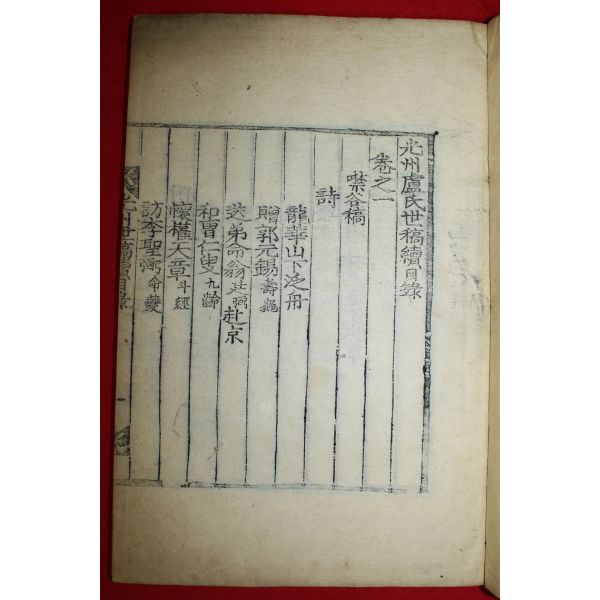 光州盧氏世稿續目錄
卷之一
禁谷稿
詩
龍華山下泛舟
贈郭元錫壽龜
送弟命翁廷弼赴京
和曺仁叟九齡
懷權天章斗經
訪李聖弼命夔
光州世稿續目錄
一